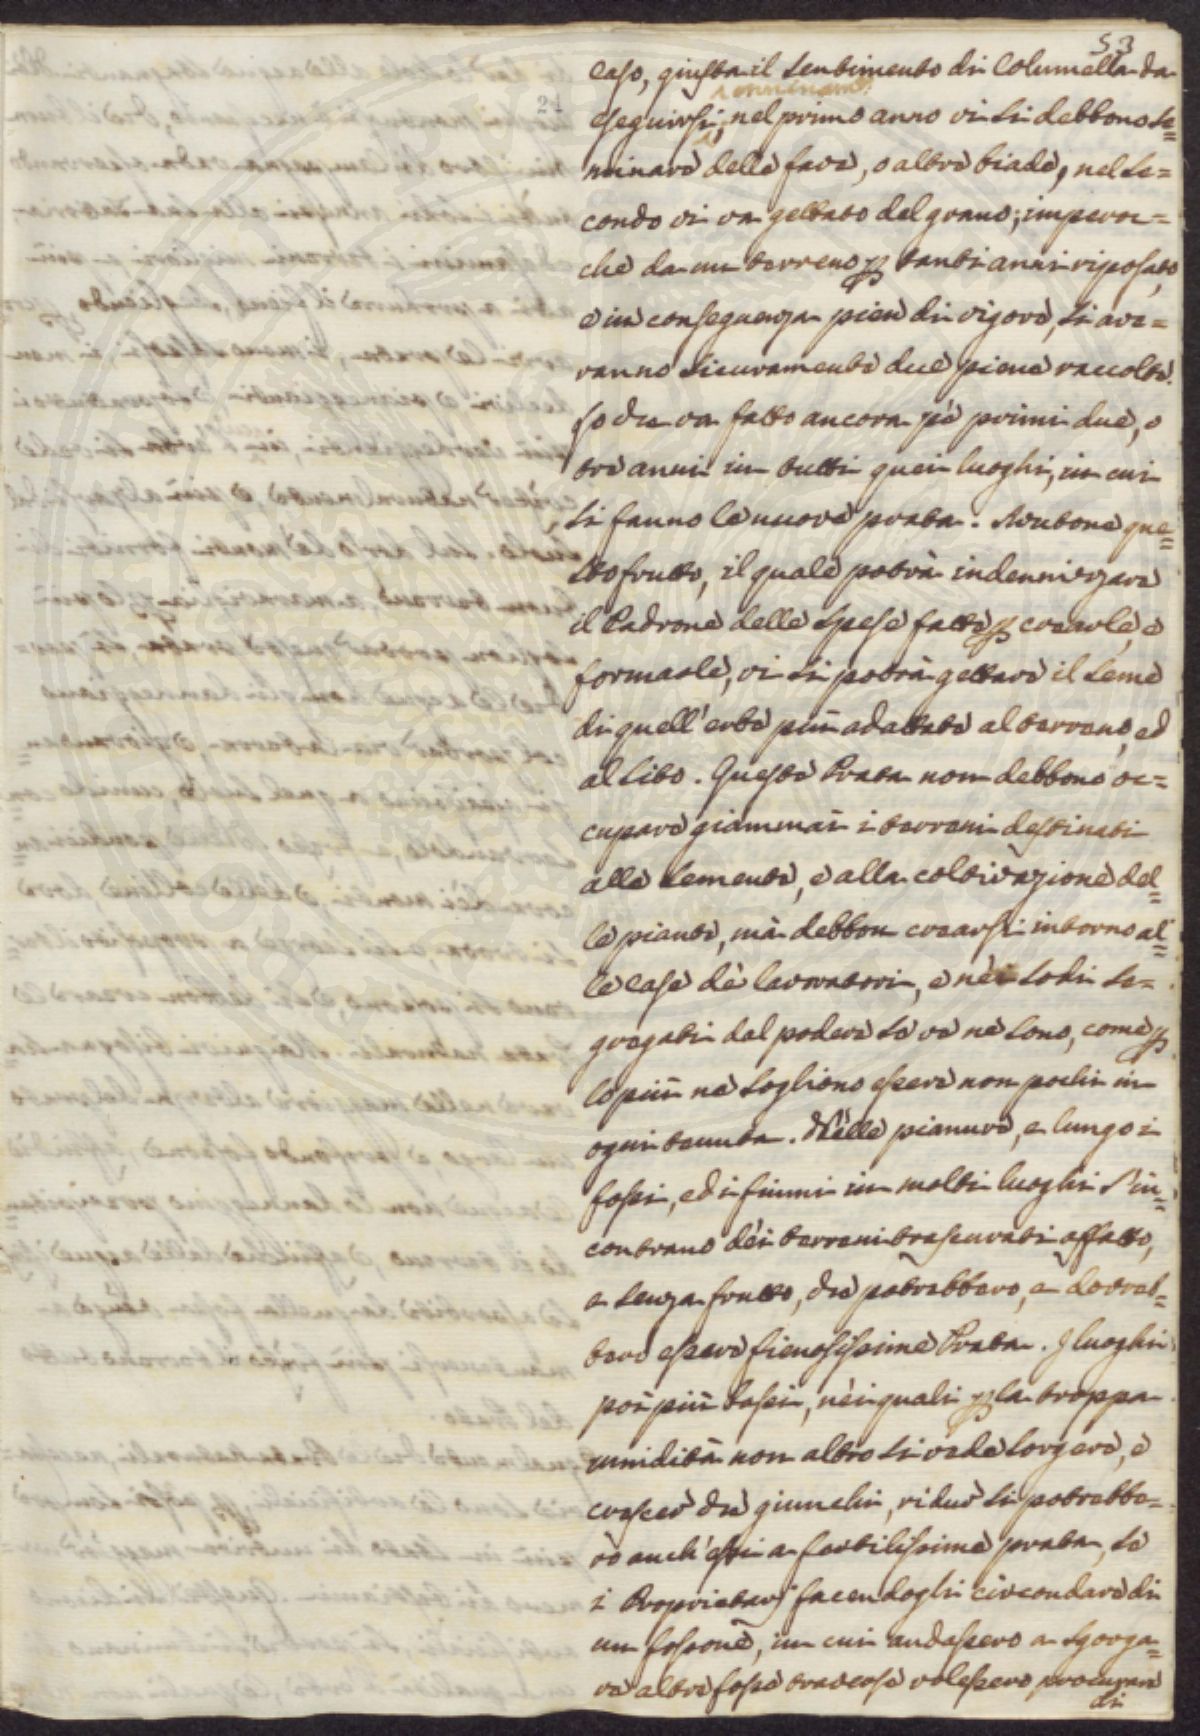 53
Caso, giusta il sentimento di Columella da
24
eseguirsi, nel primo anno vi si debbono se=
minare delle fave, o altre biade, nel se=
condo vi va gettato del grano; imperoc=
chè da un terreno p tanti anni riposato,
e in conseguenza pien di vigore, si ave=
ranno sicuramente due piene raccolte.
Lo che va fatto ancora pè primi due, o
tre anni in tutti quei luoghi, in cui
si fanno le nuove prata. Avutone que=
sto frutto, il quale potrà indennizzare
il Padrone delle spese fatte p crearle, e
formarle, vi si potrà gettare il seme
di quell'erbe più adattate al terreno, ed
al sito. Queste Prata non debbono oc=
cupare giammai i terreni destinati
alle semente, e alla coltivazione del=
le piante, mà debbon crearsi intorno al=
le case de' lavoratori, e nei sodi se=
gregati dal podere se ve ne sono, come p
lo più ne sogliono essere non pochi in
ogni tenuta. Nelle pianure, e lungo i
fossi, ed i fiumi in molti luoghi s'in=
contrano dei terreni trascurati affatto,
e senza frutto, che potrebbero, e dovreb=
bero essere fienosissime Prata. I luoghi
poi più bassi, nei quali p la troppa
umidità non altro si vede sorgere, e
crescer che giunchi, ridur si potrebbe=
ro anch'essi a fertilissime prata, se
i Proprietarj facendogli circondare di
un fossone, in cui andassero a sgorga=
re altre fosse traverse volessero procurare
di